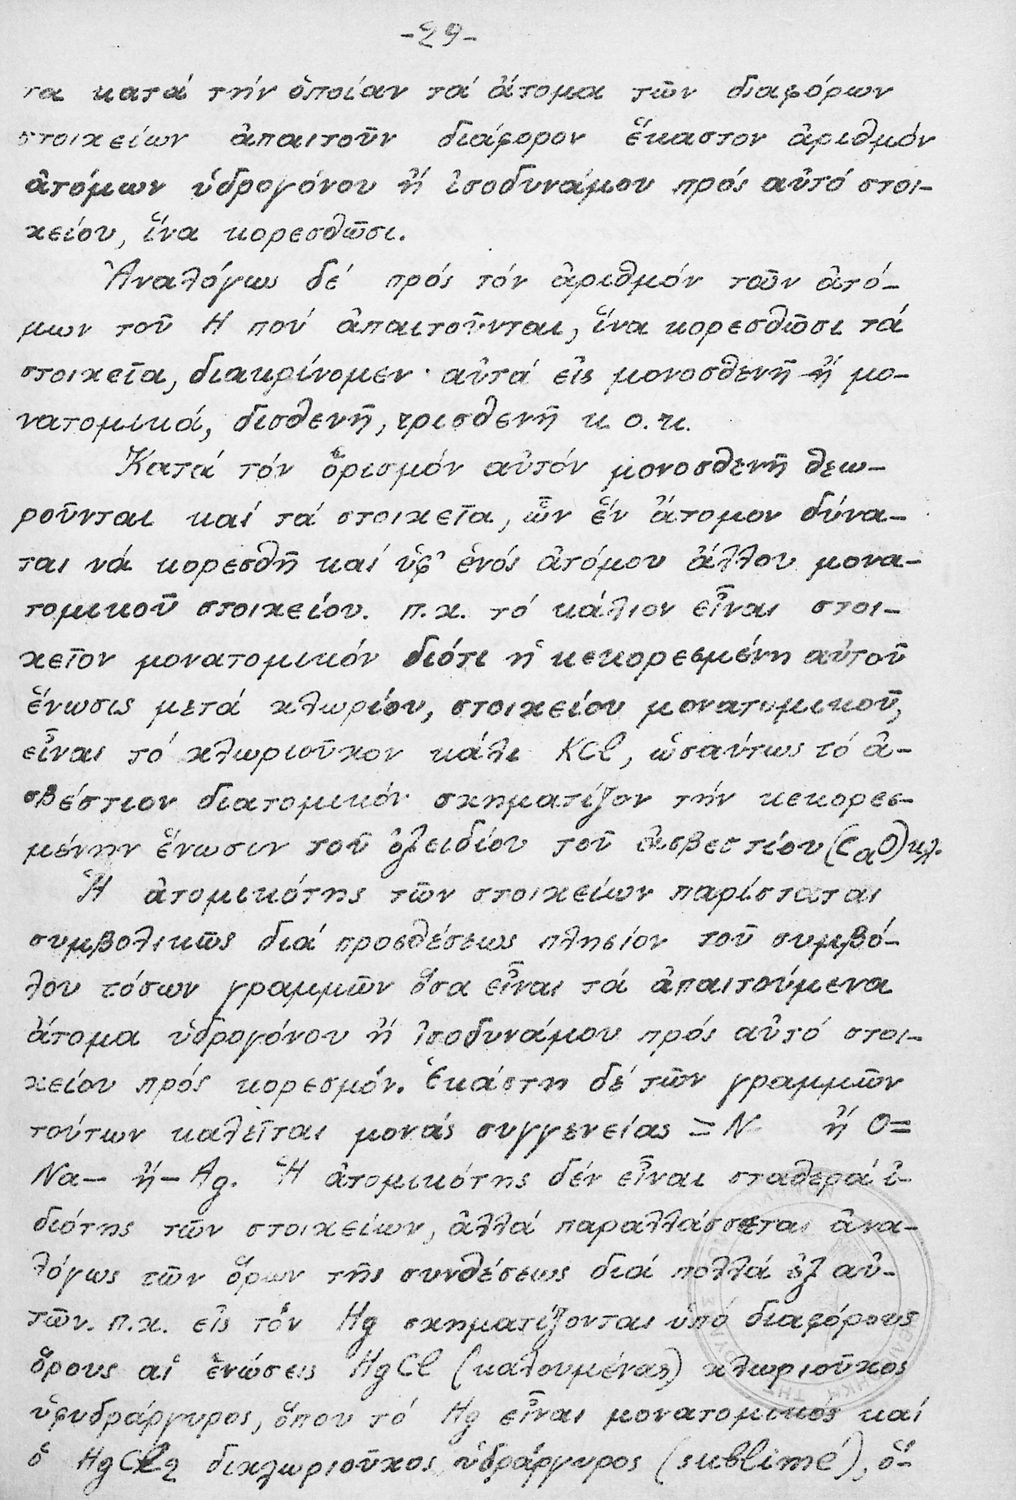 -29-
τα κατά τήν ὁποίαν τά ἄτομα τῶν διαφόρων
στοιχείων ἀπαιτοῦν διάφορον ἕκαστον ἀριθμόν
ἀτόμων ὑδρογόνου ἤ ἰσοδυνάμου πρός αὐτό στοι-
χείου, ἵνα κορεσθῶσι.
Ἀναλόγως δέ πρός τόν ἀριθμόν τοῦν ἀτό-
μων τοῦ Η πού ἀπαιτοῦνται, ἵνα κορεσθῶσι τά
στοιχεῖα, διακρίνομεν αὐτά εἰς μονοσθενῆ ἤ μο-
νατομικά, δισθενῆ, τρισθενῆ κ.ο.κ.
Κατά τόν ὁρισμόν αὐτόν μονοσθενῆ θεω-
ροῦνται καί τά στοιχεῖα, ὧν ἕν ἄτομον δύνα-
ται νά κορεσθῆ καί ὑφ' ἑνός ἀτόμου ἄλλου μονα-
τομικοῦ στοιχείου. π.χ. τό κάλιον εἶναι στοι-
χεῖον μονατομικόν διότι ἡ κεκορεσμένη αὐτοῦ
ἕνωσις μετά χλωρίου, στοιχείου μονατομικοῦ,
εἶναι τό χλωριοῦχον κάλι KCl, ὡσαύτως τό ἀ-
σβέστιον διατομικόν σχηματίζον τήν κεκορεσ-
μένην ἕνωσιν τοῦ ὀξειδίου τοῦ ἀσβεστίου (CaO) κλ.
Ἡ ἀτομικότης τῶν στοιχείων παρίσταται
συμβολικῶς διά προσθέσεως πλησίον τοῦ συμβό-
λου τόσων γραμμῶν ὅσα εἶναι τά ἀπαιτούμενα
ἄτομα ὑδρογόνου ἤ ἰσοδυνάμου πρός αὐτό στοι-
χείου πρός κορεσμόν. Ἑκάστη δέ τῶν γραμμῶν
τούτων καλεῖται μονάς συγγενείας =N- ἤ O=
Na- ἤ -Ag. Ἡ ἀτομικότης δέν εἶναι σταθερά ἰ-
διότης τῶν στοιχείων, ἀλλά παραλλάσσεται ἀνα-
λόγως τῶν ὅρων τῆς συνθέσεως διά πολλά ἐξ αὐ-
τῶν. π.χ. εἰς τόν Hg σχηματίζονται ὑπό διαφόρους
ὅρους αἱ ἑνώσεις HgCl (καλουμένας) χλωριοῦχος
ὑφυδράργυρος, ὅπου τό Hg εἶναι μονατομικος καί
ὁ HgCl2 διχλωριοῦχος ὑδράργυρος (sublimé), ὅ-